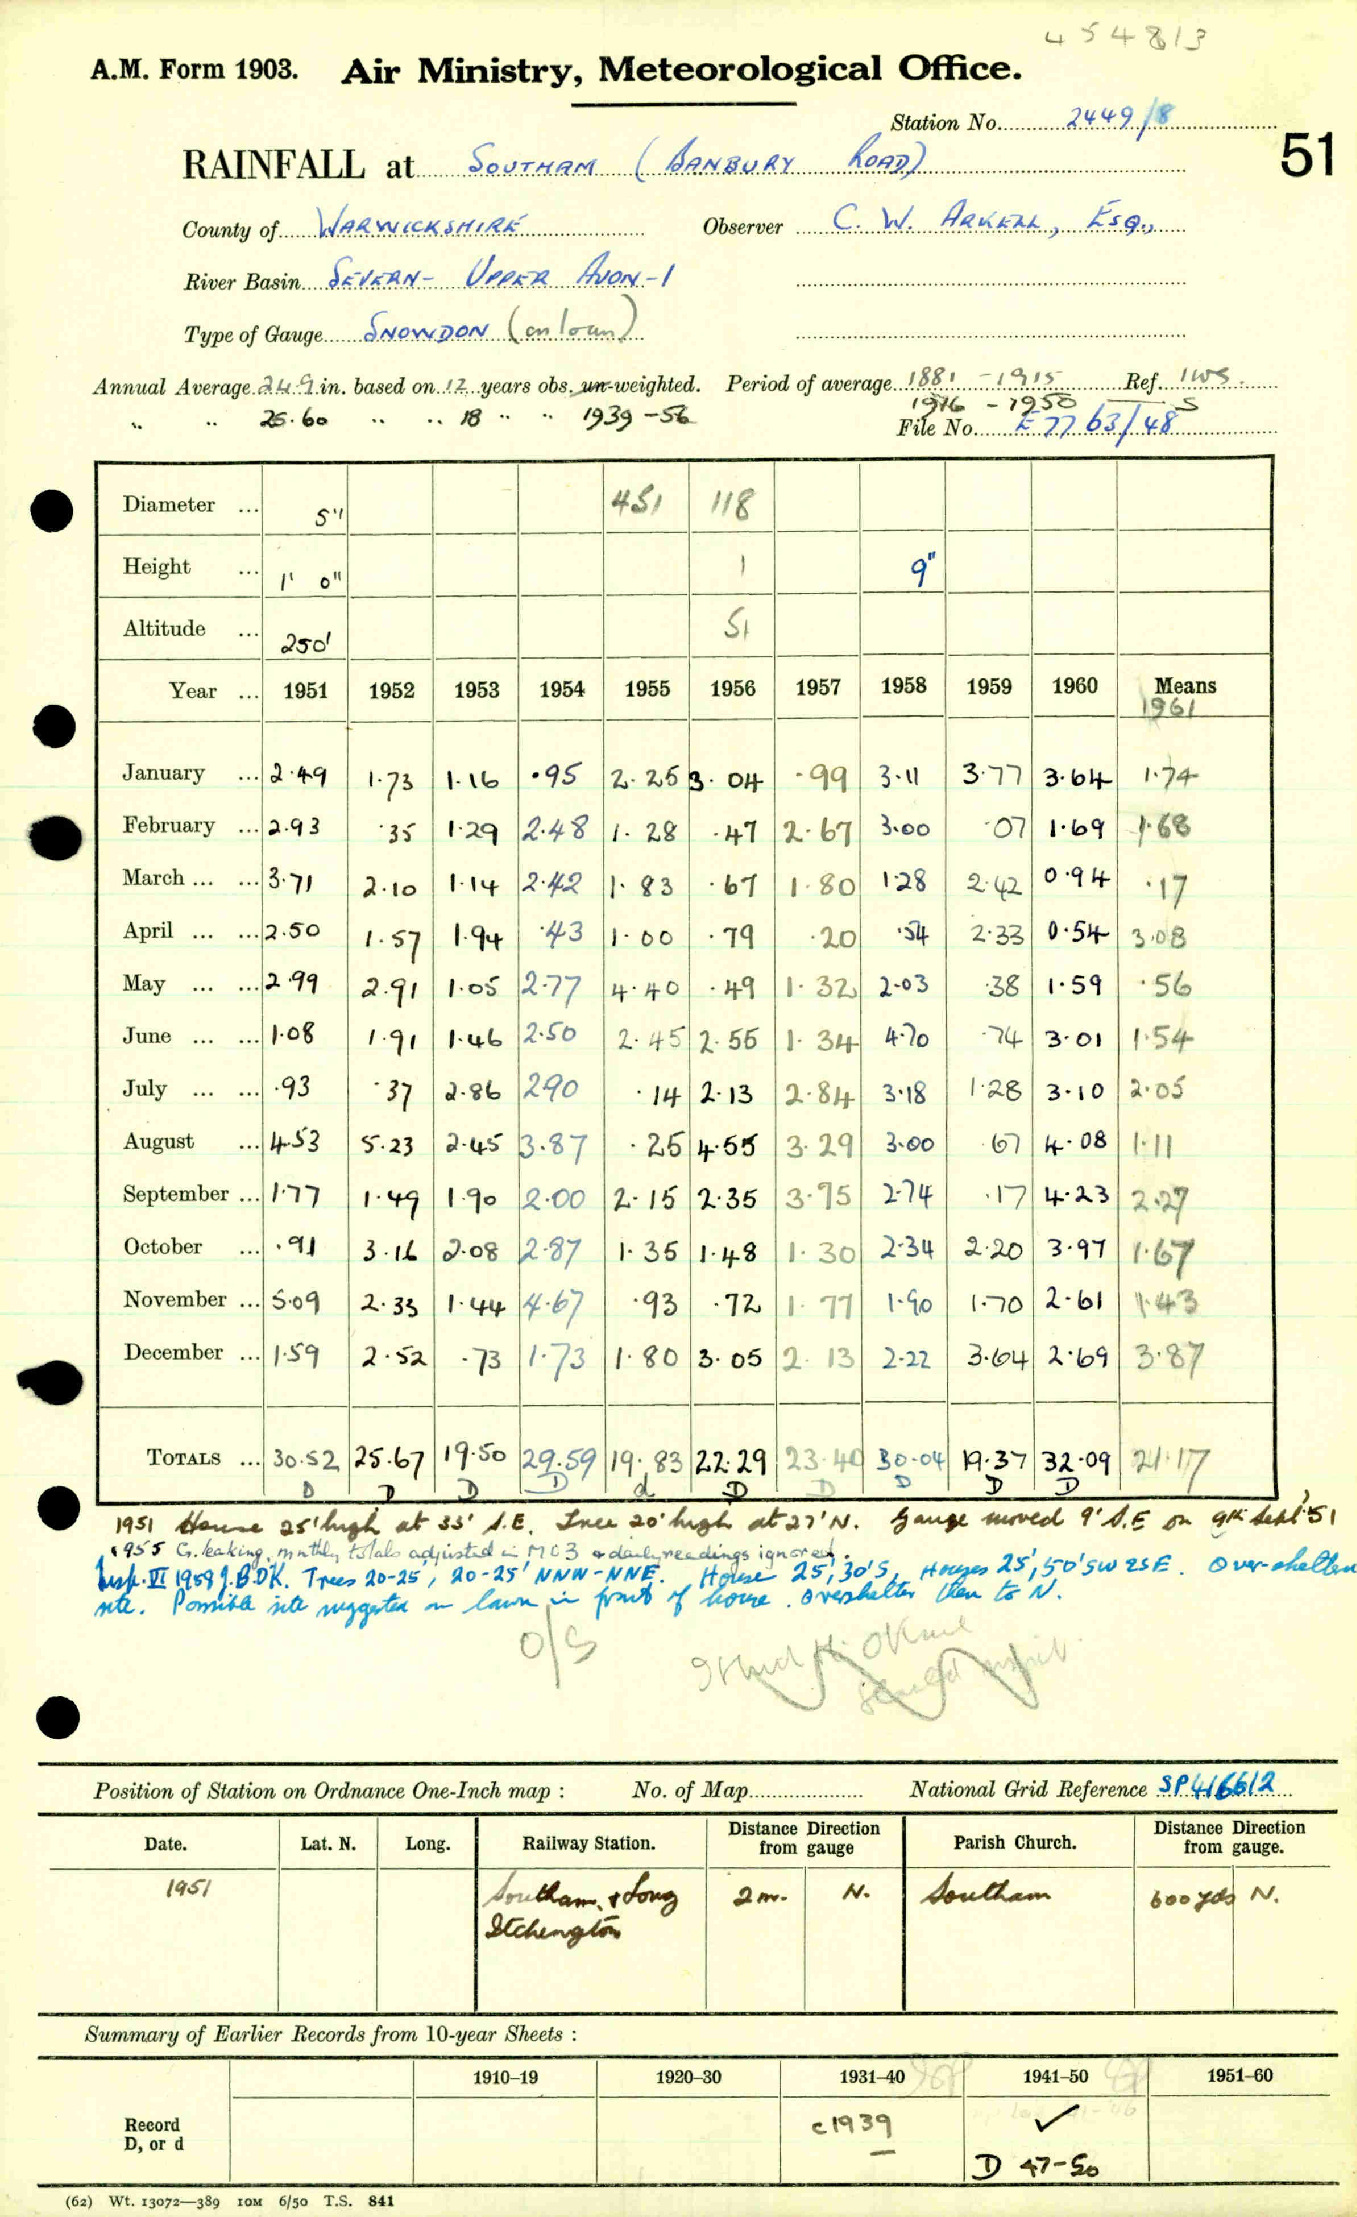 454813
A.M. Form 1903. Air Ministry, Meteorological Office.
Station No. 2449/8
51
RAINFALL at SOUTHAM (BANBURY ROAD)
County of WARWICKSHIRE Observer C. W. ARKELL, ESQ.,
River Basin SEVERN - UPPER AVON - 1
Type of Gauge SNOWDON (on loan)
Annual Average 24.9 in. based on 12 years obs. un-weighted. Period of average 1881 - 1915 Ref. IWS.
" " 25.60 " " 18 " " 1939 - 56 1916 - 1950 S
File No. E 77 63/48
Diameter ... 5" 451 118
Height ... 1' 0" 1 9"
Altitude ... 250' 51
Year ... 1951 1952 1953 1954 1955 1956 1957 1958 1959 1960 Means
1961
January ... 2.49 1.73 1.16 .95 2.25 3.04 .99 3.11 3.77 3.64 1.74
February ... 2.93 .35 1.29 2.48 1.28 .47 2.67 3.00 .07 1.69 1.68
March ... ... 3.71 2.10 1.14 2.42 1.83 .67 1.80 1.28 2.42 0.94 .17
April ... ... 2.50 1.57 1.94 .43 1.00 .79 .20 .54 2.33 0.54 3.08
May ... ... 2.99 2.91 1.05 2.77 4.40 .49 1.32 2.03 .38 1.59 .56
June ... ... 1.08 1.91 1.46 2.50 2.45 2.55 1.34 4.70 .74 3.01 1.54
July ... ... .93 .37 2.86 2.90 .14 2.13 2.84 3.18 1.28 3.10 2.05
August ... 4.53 5.23 2.45 3.87 .25 4.55 3.29 3.00 .67 4.08 1.11
September ... 1.77 1.49 1.90 2.00 2.15 2.35 3.75 2.74 .17 4.23 2.27
October ... .91 3.16 2.08 2.87 1.35 1.48 1.30 2.34 2.20 3.97 1.67
November ... 5.09 2.33 1.44 4.67 .93 .72 1.77 1.90 1.70 2.61 1.43
December ... 1.59 2.52 .73 1.73 1.80 3.05 2.13 2.22 3.64 2.69 3.87
TOTALS ... 30.52 25.67 19.50 29.59 19.83 22.29 23.40 30.04 19.37 32.09 21.17
D D D D d D D D D D
1951 House 25' high at 33' S.E. Tree 20' high at 27' N. Gauge moved 9' S.E on 9th Sept '51
1955 G. leaking, monthly totals adjusted in MO3 & daily readings ignored.
Insp. III 1958 J.B.D.K. Trees 20-25', 20-25' NNW-NNE. House 25', 30' S, Houses 25', 50' SW ESE. Over-sheltered
site. Possible site suggested on lawn in front of house. overshelter then to N.
O/S
Position of Station on Ordnance One-Inch map : No. of Map National Grid Reference SP 416612
Date. Lat. N. Long. Railway Station. Distance from Direction gauge Parish Church. Distance from Direction gauge.
1951 Southam & Long 2 m. N. Southam 600 yds N.
Itchington
Summary of Earlier Records from 10-year Sheets :
1910–19 1920–30 1931–40 1941–50 1951–60
Record c1939 ✓
D, or d
D 47-50
(62) Wt. 13072—389 10M 6/50 T.S. 841